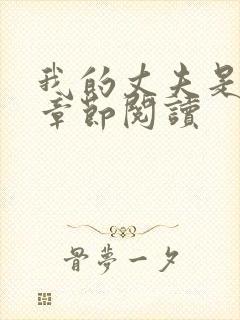 我的丈夫是
章節閱讀
骨夢一夕